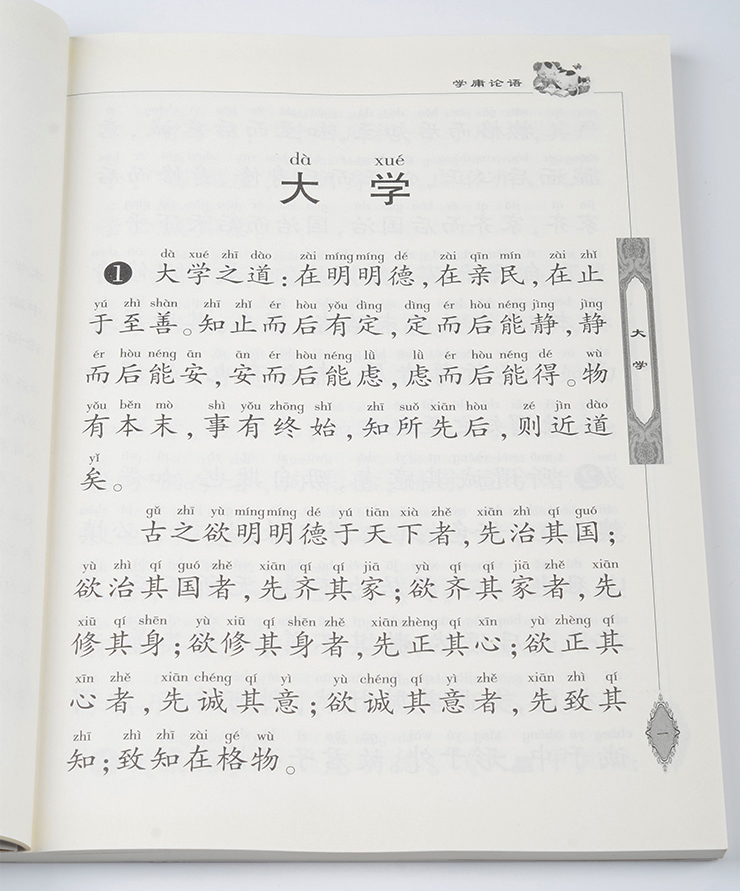 学庸论语
dà xué
大学
dà xué zhī dào zài míng míng dé zài qīn mín zài zhǐ
❶ 大学之道:在明明德,在亲民,在止
yú zhì shàn zhī zhǐ ér hòu yǒu dìng dìng ér hòu néng jìng jìng
于至善。知止而后有定,定而后能静,静
ér hòu néng ān ān ér hòu néng lǜ lǜ ér hòu néng dé wù
而后能安,安而后能虑,虑而后能得。物
yǒu běn mò shì yǒu zhōng shǐ zhī suǒ xiān hòu zé jìn dào
有本末,事有终始,知所先后,则近道
yǐ
矣。
gǔ zhī yù míng míng dé yú tiān xià zhě xiān zhì qí guó
古之欲明明德于天下者,先治其国;
yù zhì qí guó zhě xiān qí qí jiā yù qí qí jiā zhě xiān
欲治其国者,先齐其家;欲齐其家者,先
xiū qí shēn yù xiū qí shēn zhě xiān zhèng qí xīn yù zhèng qí
修其身;欲修其身者,先正其心;欲正其
xīn zhě xiān chéng qí yì yù chéng qí yì zhě xiān zhì qí
心者,先诚其意;欲诚其意者,先致其
zhī zhì zhī zài gé wù
知;致知在格物。
大学
一